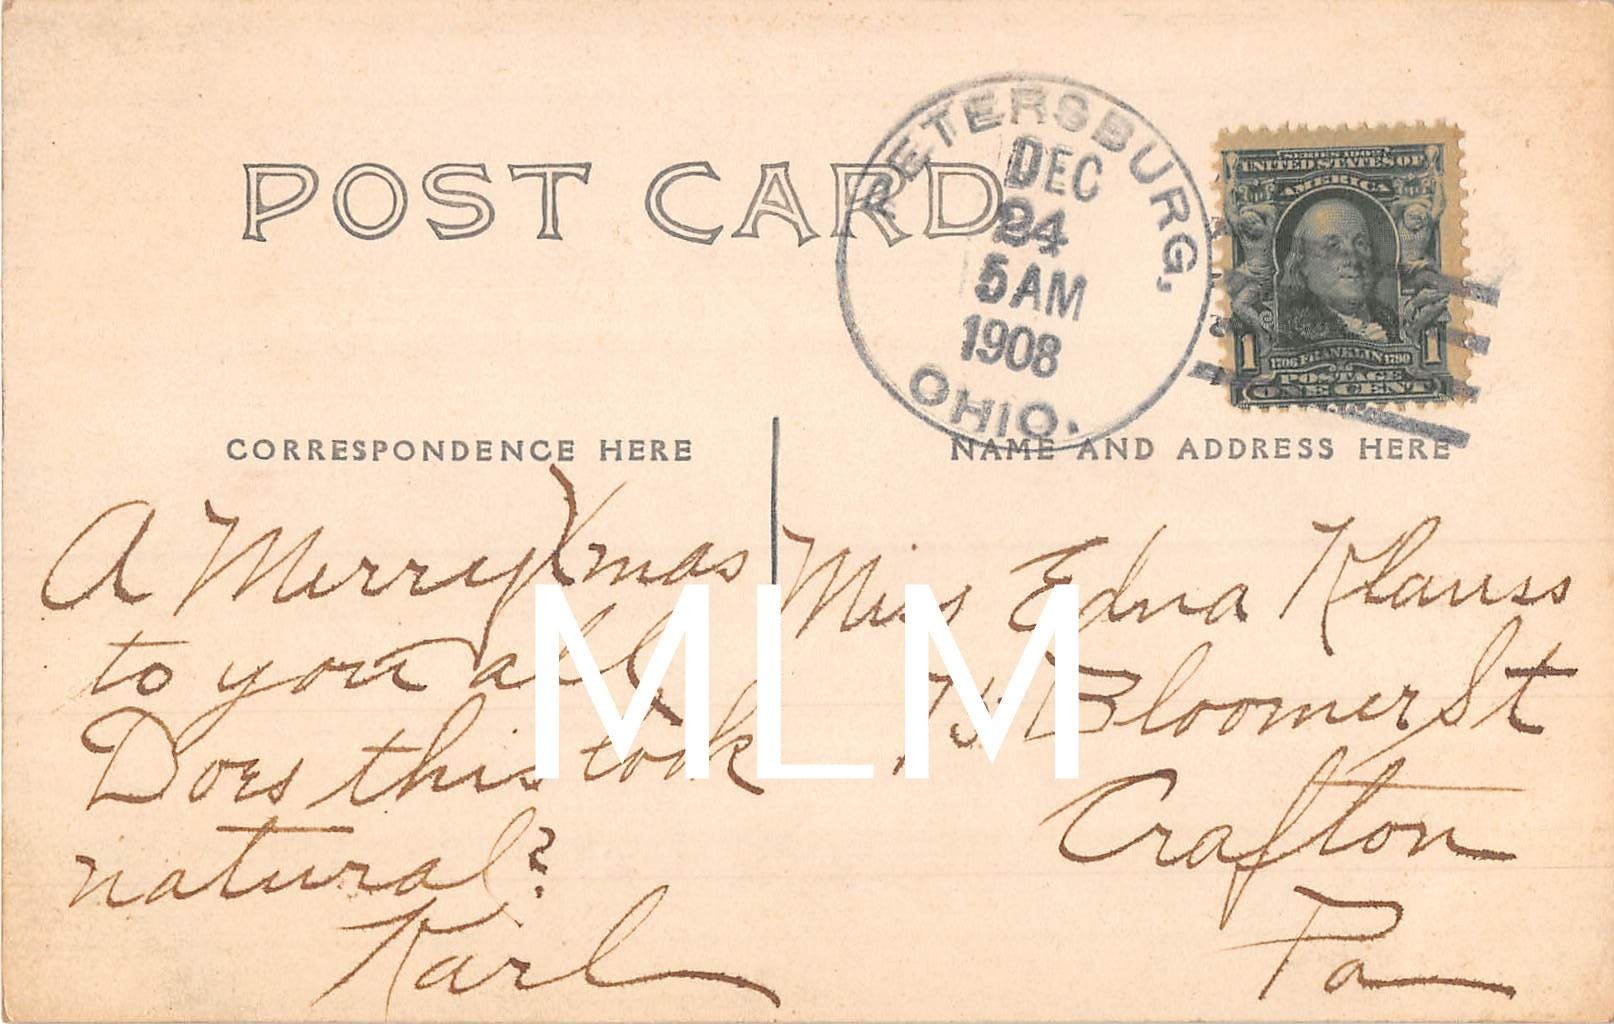 POST CARD
PETERSBURG,
DEC
24
5 AM
1908
OHIO.
SERIES 1902
UNITED STATES OF
AMERICA
1 1
1706 FRANKLIN 1790
POSTAGE
ONE CENT
CORRESPONDENCE HERE
NAME AND ADDRESS HERE
A Merry Xmas
to you all
Does this look
natural?
Karl
Miss Edna Klauss
75 Bloomer St
Crafton
Pa
MLM